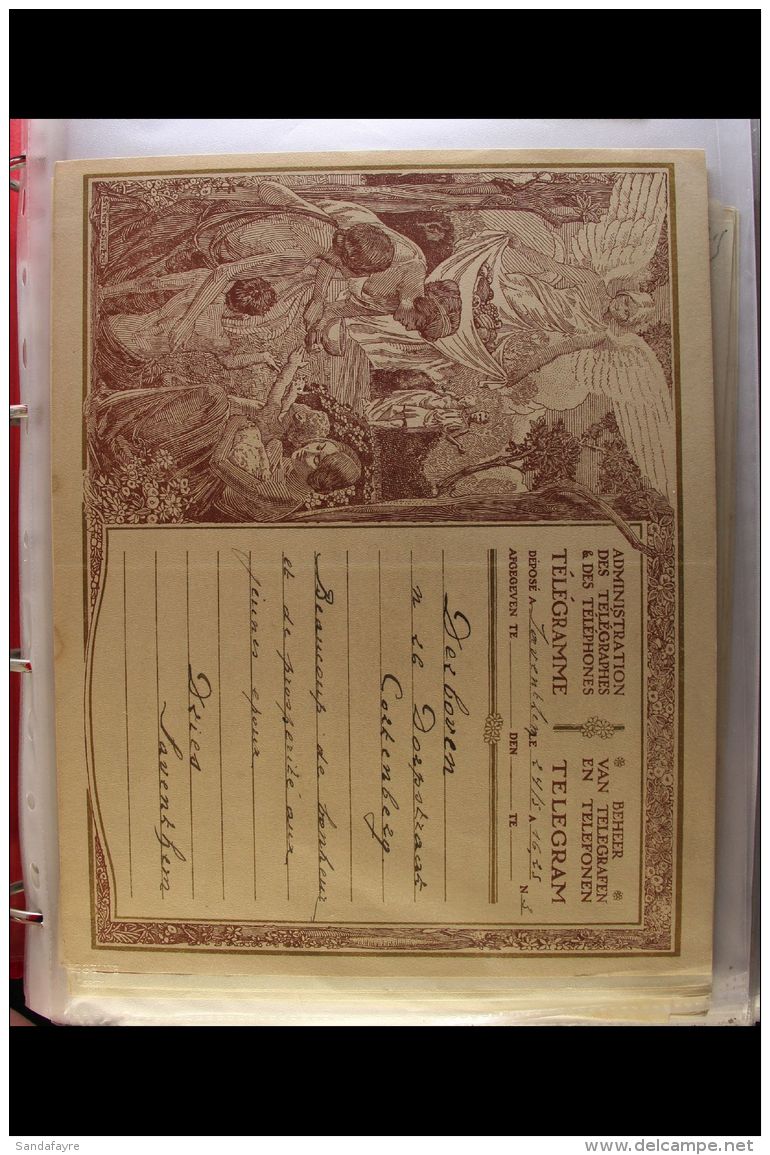 ADMINISTRATION
DES TÉLÉGRAPHES
& DES TÉLÉPHONES
BEHEER
VAN TELEGRAFEN
EN TELEFONEN
TÉLÉGRAMME TELEGRAM
DÉPOSÉ A Saventhem E 24/5 A 16,25
AFGEGEVEN TE DEN TE N 3
Derhoven
n 26 Dorpstraat
Cortenberg
Beaucoup de bonheur
et de prospérité aux
jeunes epoux
Dries
Saventhem
Sandafayre
delcampe.net